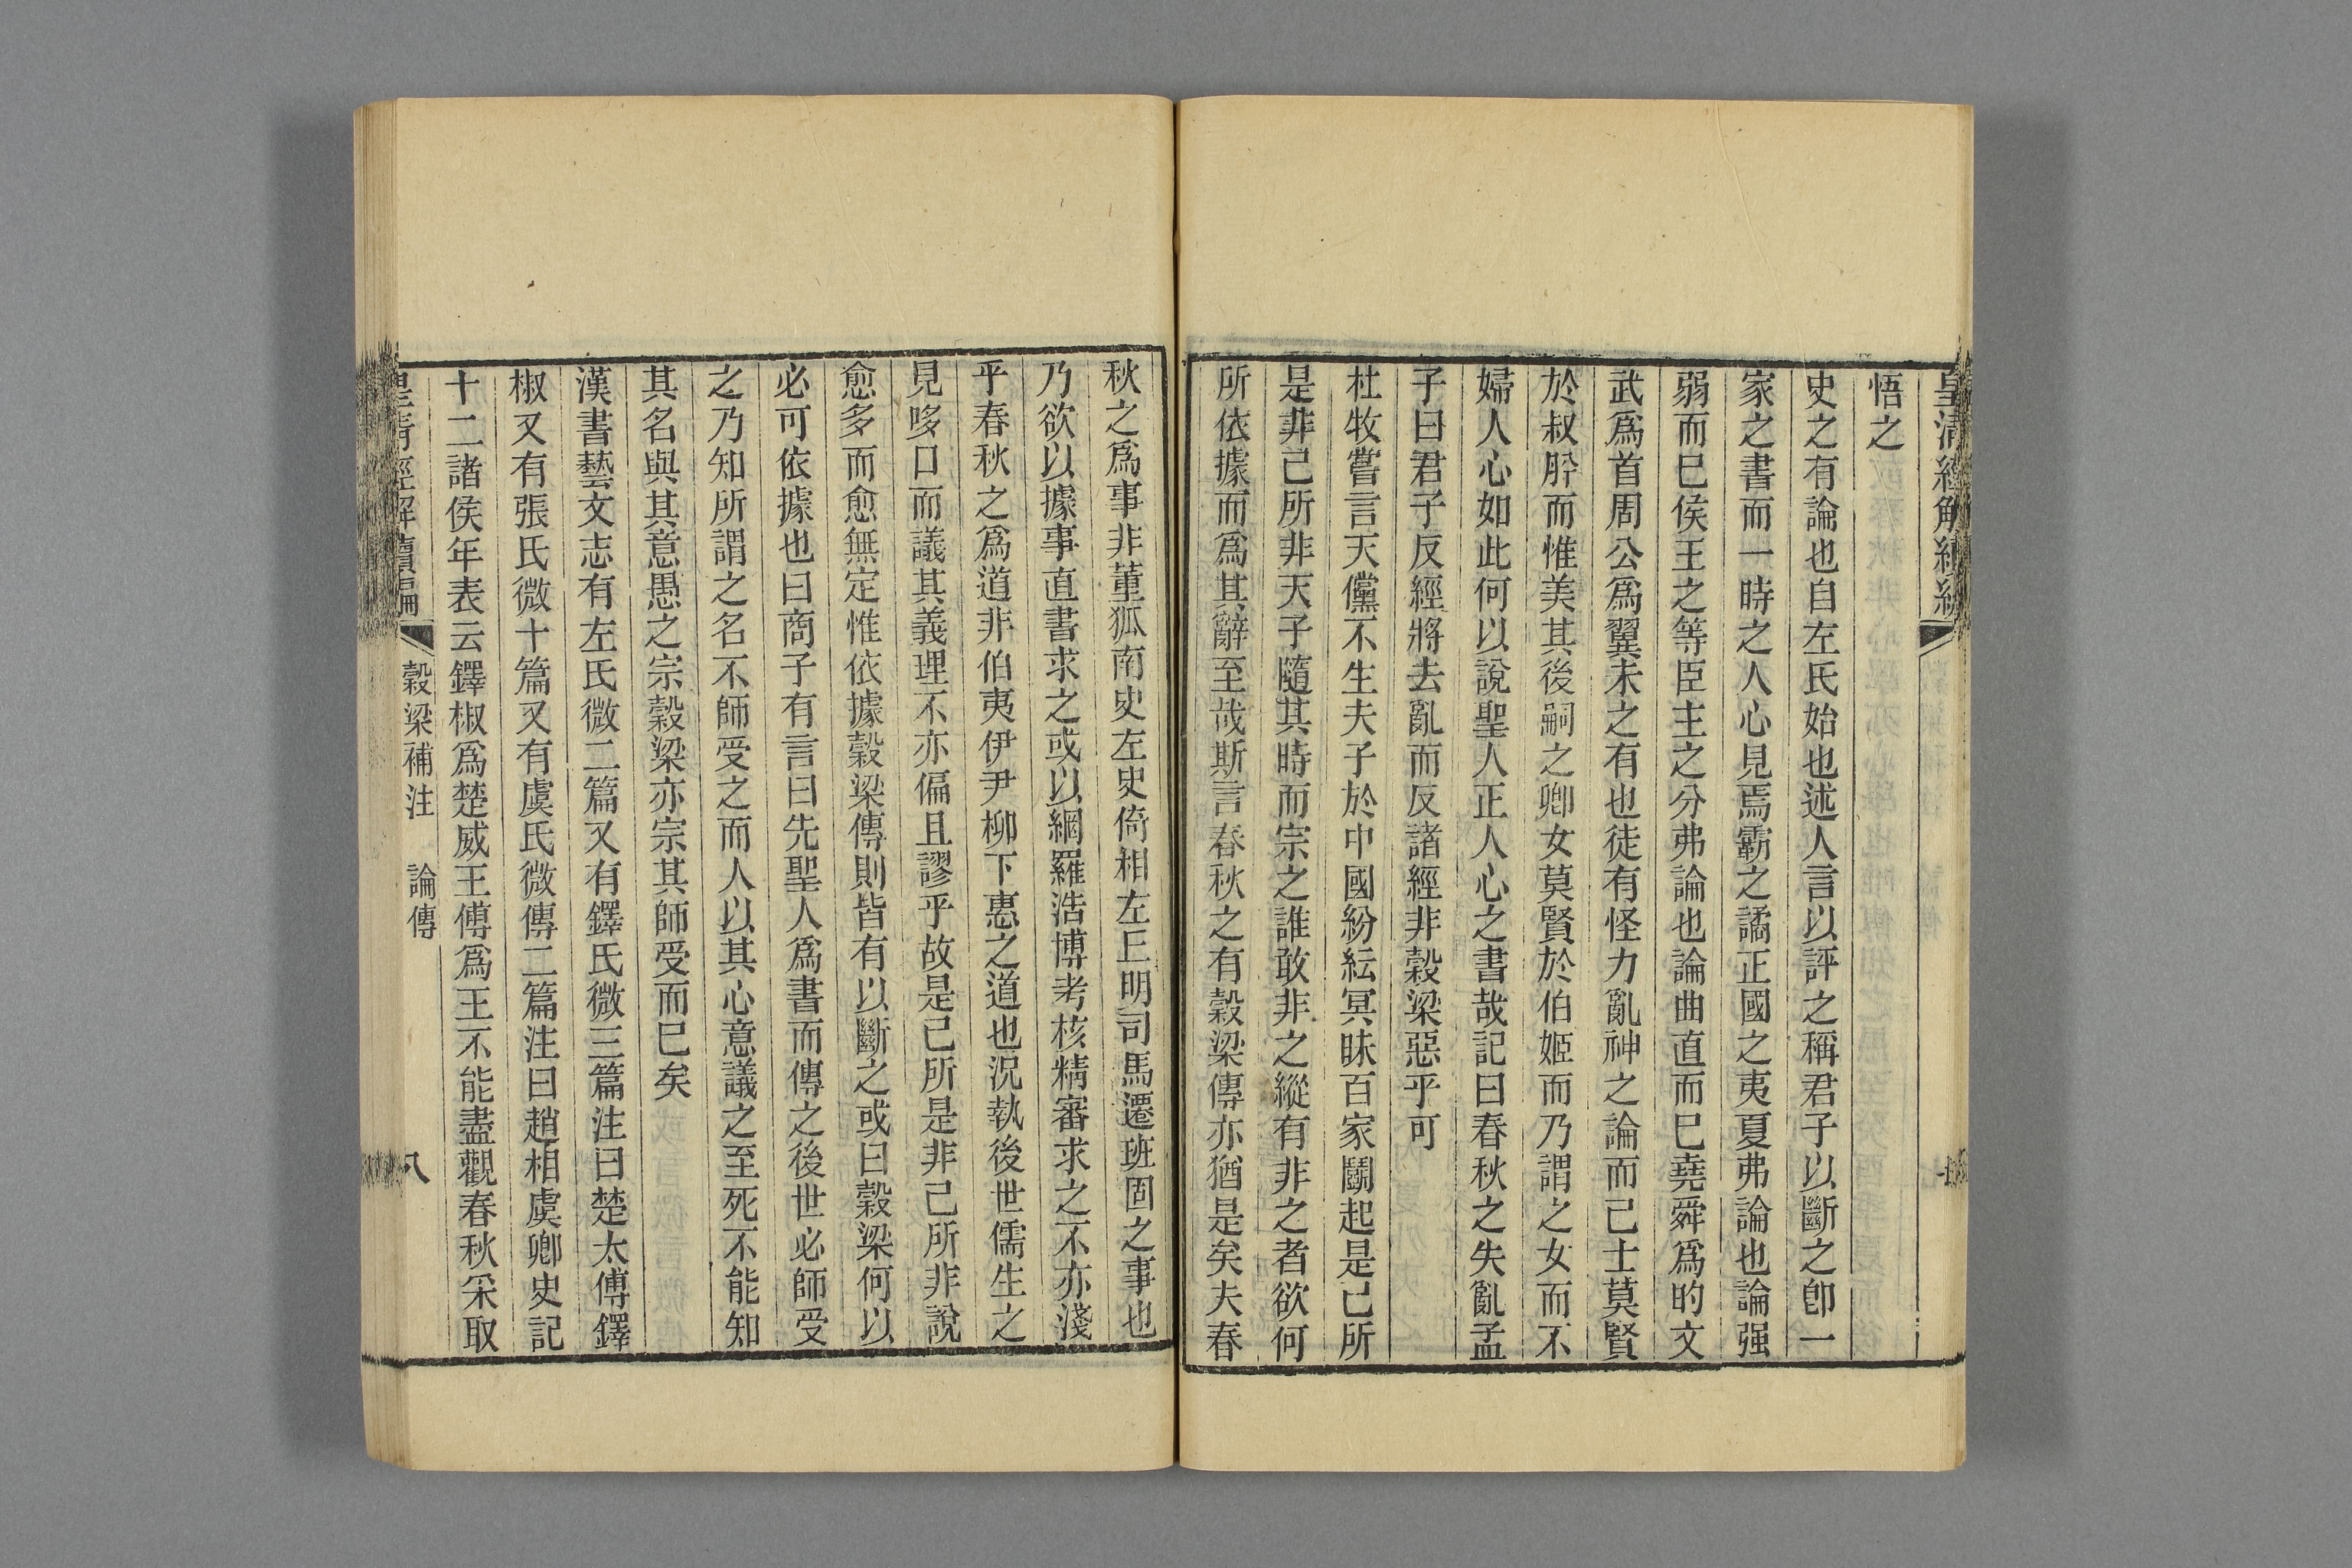 皇清經解續編
悟之
史之有論也自左氏始也述人言以評之稱君子以斷之卽一
家之書而一時之人心見焉霸之譎正國之夷夏弗論也論强
弱而巳侯王之等臣主之分弗論也論曲直而巳堯舜爲旳文
武爲首周公爲翼未之有也徒有怪力亂神之論而己士莫賢
於叔肸而惟美其後嗣之卿女莫賢於伯姬而乃謂之女而不
婦人心如此何以說聖人正人心之書哉記曰春秋之失亂孟
子曰君子反經將去亂而反諸經非穀梁惡乎可
杜牧嘗言天儻不生夫子於中國紛紜冥昧百家鬭起是己所
是非己所非天子隨其時而宗之誰敢非之縱有非之者欲何
所依據而爲其辭至哉斯言春秋之有穀梁傳亦猶是矣夫春
秋之爲事非董狐南史左史倚相左丘明司馬遷班固之事也
乃欲以據事直書求之或以網羅浩博考核精審求之不亦淺
乎春秋之爲道非伯夷伊尹柳下惠之道也況執後世儒生之
見哆口而議其義理不亦偏且謬乎故是己所是非己所非說
愈多而愈無定惟依據穀梁傳則皆有以斷之或曰穀梁何以
必可依據也曰商子有言曰先聖人爲書而傳之後世必師受
之乃知所謂之名不師受之而人以其心意議之至死不能知
其名與其意愚之宗穀梁亦宗其師受而巳矣
漢書藝文志有左氏微二篇又有鐸氏微三篇注曰楚太傅鐸
椒又有張氏微十篇又有虞氏微傳二篇注曰趙相虞卿史記
十二諸侯年表云鐸椒爲楚威王傅爲王不能盡觀春秋采取
皇清經解續編 穀梁補注 論傳 八